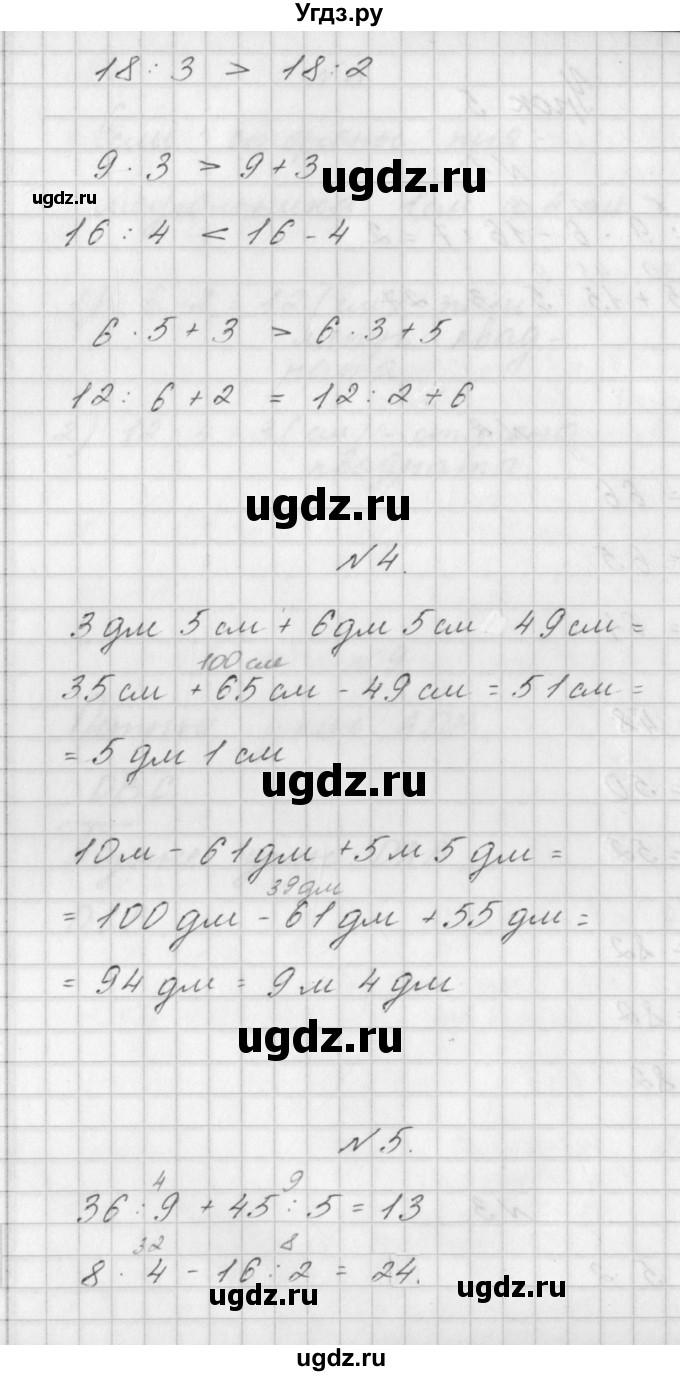 Угдз.ру
18 : 3 > 18 : 2
9 · 3 > 9 + 3
ugdz.ru
ugdz.ru
16 : 4 < 16 - 4
6 · 5 + 3 > 6 · 3 + 5
12 : 6 + 2 = 12 : 2 + 6
ugdz.ru
N 4.
3 дм 5 см + 6 дм 5 см 49 см =
100 см
35 см + 65 см - 49 см = 51 см =
= 5 дм 1 см
ugdz.ru
10 м - 61 дм + 5 м 5 дм =
39 дм
= 100 дм - 61 дм + 55 дм =
= 94 дм = 9 м 4 дм
ugdz.ru
N 5.
4 9
36 : 9 + 45 : 5 = 13
32 8
8 · 4 - 16 : 2 = 24.
ugdz.ru
ugdz.ru
ugdz.ru